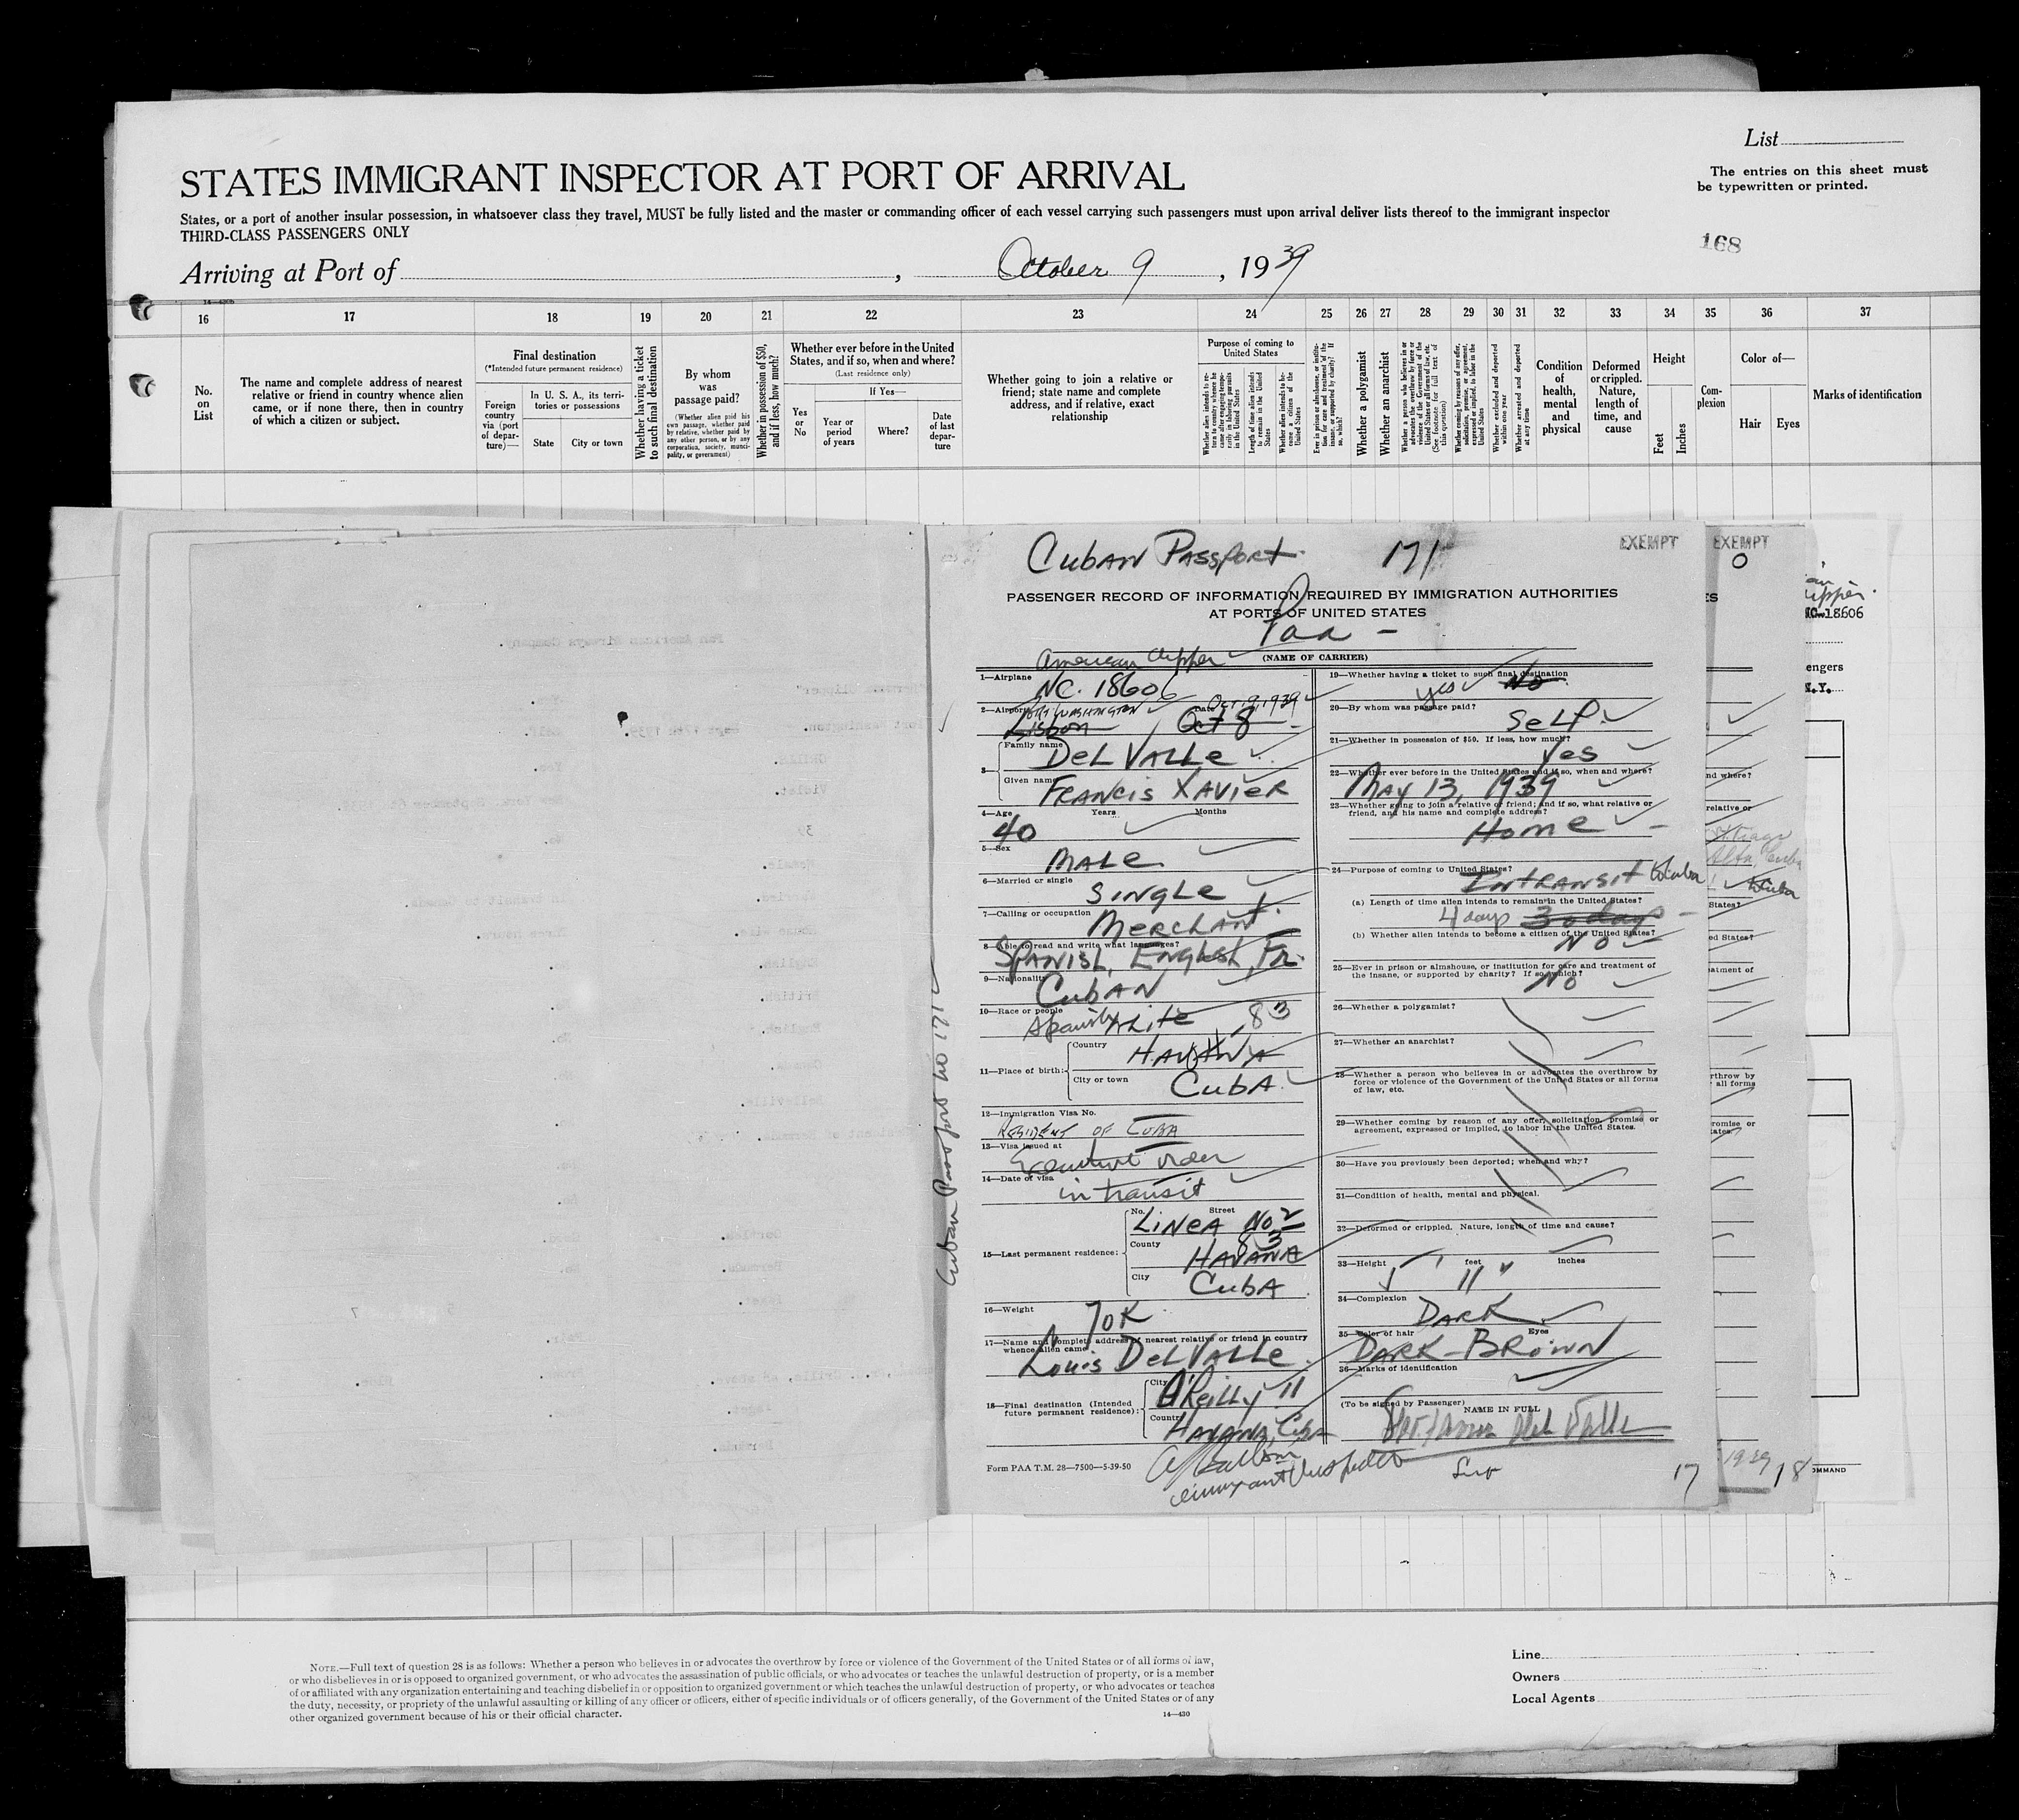 List
The entries on this sheet must
be typewritten or printed.
STATES IMMIGRANT INSPECTOR AT PORT OF ARRIVAL
States, or a port of another insular possession, in whatsoever class they travel, MUST be fully listed and the master or commanding officer of each vessel carrying such passengers must upon arrival deliver lists thereof to the immigrant inspector
THIRD-CLASS PASSENGERS ONLY
168
Arriving at Port of , October 9 , 1939
16 17 18 19 20 21 22 23 24 25 26 27 28 29 30 31 32 33 34 35 36 37
No. on List
The name and complete address of nearest relative or friend in country whence alien came, or if none there, then in country of which a citizen or subject.
Final destination
(*Intended future permanent residence)
Foreign country via (port of departure)—
In U. S. A., its territories or possessions
State
City or town
Whether having a ticket to such final destination
By whom was passage paid?
(Whether alien paid his own passage, whether paid by relative, whether paid by any other person, or by any corporation, society, municipality, or government)
Whether in possession of $50, and if less, how much?
Whether ever before in the United States, and if so, when and where?
(Last residence only)
If Yes—
Yes or No
Year or period of years
Where?
Date of last departure
Whether going to join a relative or friend; state name and complete address, and if relative, exact relationship
Purpose of coming to United States
Length of time alien intends to remain in the United States
Whether alien intends to become a citizen of the United States
Whether a polygamist
Whether an anarchist
Whether excluded and deported within one year
Whether arrested and deported at any time
Condition of health, mental and physical
Deformed or crippled. Nature, length of time, and cause
Height
Feet
Inches
Complexion
Color of—
Hair
Eyes
Marks of identification
Cuban Passport 171
EXEMPT
EXEMPT
PASSENGER RECORD OF INFORMATION REQUIRED BY IMMIGRATION AUTHORITIES
AT PORTS OF UNITED STATES
Paa -
American Clipper
(NAME OF CARRIER)
1—Airplane NC. 18606
2—Airport Port Washington Date Oct. 9, 1939
Lisbon Oct 8
3— Family name Del Valle
Given name Francis Xavier
4—Age Years Months
40
5—Sex Male
6—Married or single Single
7—Calling or occupation Merchant
8—Able to read and write what languages?
Spanish, English, Fr.
9—Nationality Cuban
10—Race or people Spanish White 83
11—Place of birth: Country Havana
City or town Cuba
12—Immigration Visa No.
Resident of Cuba
13—Visa issued at
Executive order
14—Date of visa in transit
15—Last permanent residence: No. Street
Linea No 2
83
County Havana
City Cuba
16—Weight 70K
17—Name and complete address of nearest relative or friend in country
whence alien came
Louis Del Valle
18—Final destination (Intended future permanent residence): City O'Reilly 11
County Havana, Cuba
Form PAA T.M. 28—7500—5-39-50
Immigrant Inspector
19—Whether having a ticket to such final destination
yes No
20—By whom was passage paid?
Self
21—Whether in possession of $50. If less, how much?
Yes
22—Whether ever before in the United States and if so, when and where?
May 13, 1939
23—Whether going to join a relative or friend; and if so, what relative or
friend, and his name and complete address?
Home
24—Purpose of coming to United States?
Intransit to Cuba
(a) Length of time alien intends to remain in the United States?
4 days 30 days
(b) Whether alien intends to become a citizen of the United States?
No
25—Ever in prison or almshouse, or institution for care and treatment of
the insane, or supported by charity? If so, which?
No
26—Whether a polygamist?
27—Whether an anarchist?
28—Whether a person who believes in or advocates the overthrow by
force or violence of the Government of the United States or all forms
of law, etc.
29—Whether coming by reason of any offer, solicitation, promise or
agreement, expressed or implied, to labor in the United States.
30—Have you previously been deported; when and why?
31—Condition of health, mental and physical.
32—Deformed or crippled. Nature, length of time and cause?
33—Height feet inches
5' 11"
34—Complexion Dark
35—Color of hair Eyes
Dark-Brown
36—Marks of identification
(To be signed by Passenger) NAME IN FULL
17
Cuban Passport No 171
NC-18606
engers
N.Y.
nd where?
relative or
to Cuba
States?
ed States?
atment of
rthrow by
all forms
romise or
tates.
1939 18
OMMAND
NOTE.—Full text of question 28 is as follows: Whether a person who believes in or advocates the overthrow by force or violence of the Government of the United States or of all forms of law,
or who disbelieves in or is opposed to organized government, or who advocates the assassination of public officials, or who advocates or teaches the unlawful destruction of property, or is a member
of or affiliated with any organization entertaining and teaching disbelief in or opposition to organized government or which teaches the unlawful destruction of property, or who advocates or teaches
the duty, necessity, or propriety of the unlawful assaulting or killing of any officer or officers, either of specific individuals or of officers generally, of the Government of the United States or of any
other organized government because of his or their official character.
14—430
Line
Owners
Local Agents